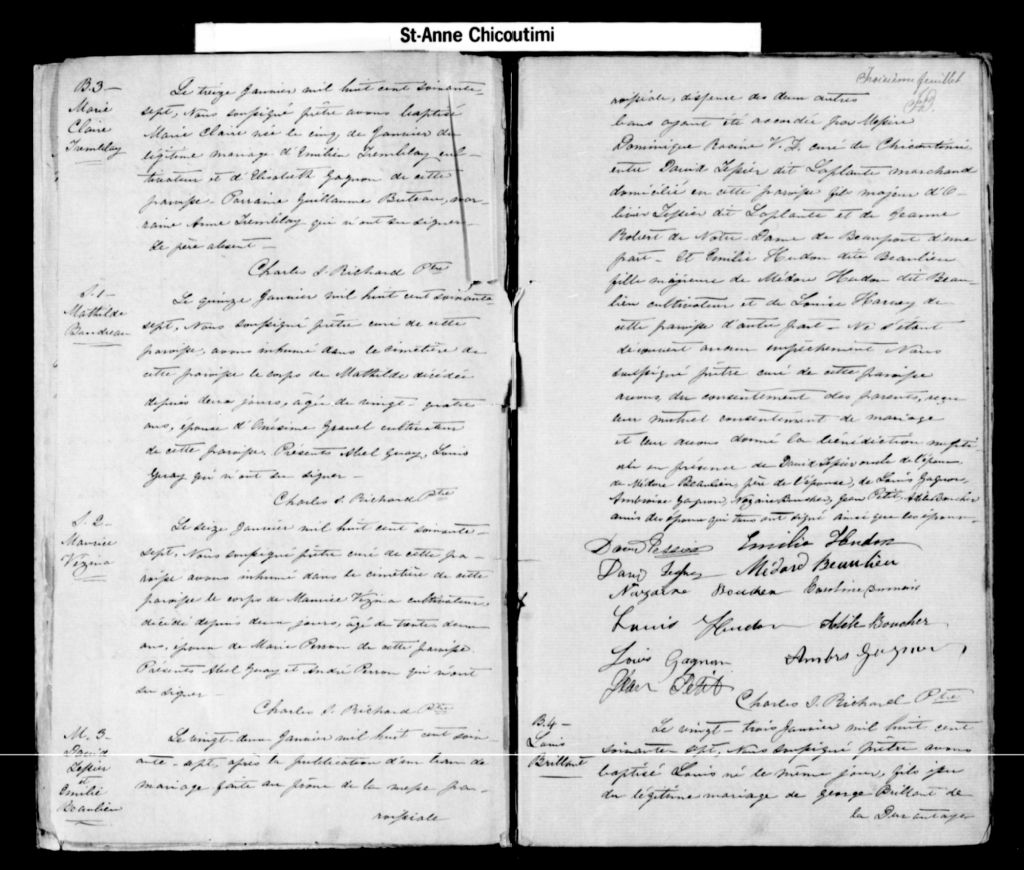 St-Anne Chicoutimi
B. 3 —
Marie
Claire
Tremblay
Le treize Janvier mil huit cent soixante-
sept, Nous soussigné prêtre avons baptisé
Marie Claire née le cinq de Janvier du
légitime mariage d'Emilien Tremblay cul-
tivateur et d'Elisabeth Gagnon de cette
paroisse. Parrain Guillaume Buteau, mar-
raine Anne Tremblay qui n'ont su signer.
Le père absent —
Charles S. Richard Ptre
S. 1 —
Mathilde
Boudreau
Le quinze Janvier mil huit cent soixante
sept, Nous soussigné prêtre curé de cette
paroisse, avons inhumé dans le cimetière de
cette paroisse le corps de Mathilde décédée
depuis deux jours, âgée de vingt-quatre
ans, épouse d'Onésime cultivateur
de cette paroisse. Présents Abel Guay, Louis
Guay qui n'ont su signer —
Charles S. Richard Ptre
S. 2 —
Maurice
Vézina
Le seize Janvier mil huit cent soixante-
sept, Nous soussigné prêtre curé de cette pa-
roisse avons inhumé dans le cimetière de cette
paroisse le corps de Maurice Vézina cultivateur
décédé depuis deux jours, âgé de trente deux
ans, époux de Marie Perron de cette paroisse
Présents Abel Guay et André Perron qui n'ont
su signer —
Charles S. Richard Ptre
M. 3 —
David
Tessier
et
Emilie
Beaulieu
Le vingt-deux Janvier mil huit cent soix-
ante-sept, après la publication d'un ban de
mariage faite au prône de la messe pa-
roissiale
Troisième feuillet
roissiale, dispense des deux autres
bans ayant été accordée par Messire
Dominique Racine V. F. curé de Chicoutimi
entre David Tessier dit Laplante marchand
domicilié en cette paroisse fils majeur d'O-
livier Tessier dit Laplante et de Jeanne
Robert de Notre-Dame de Beauport d'une
part — Et Emilie Hudon dite Beaulieu
fille majeure de Médard Hudon dit Beau-
lieu cultivateur et de Louise Harvay de
cette paroisse d'autre part — Ne s'étant
découvert aucun empêchement Nous
soussigné prêtre curé de cette paroisse
avons, du consentement des parents, reçu
leur mutuel consentement de mariage
et leur avons donné la bénédiction nupti-
ale en présence de David Tessier oncle de l'époux,
de Médard Beaulieu, père de l'épouse, de Louis Gagnon,
Ambroise Gagnon, Nazaire Boucher, Jean Petit, Adèle Boucher
amis des époux qui tous ont signé ainsi que les époux —
David Tessier Emilie Hudon
David Médard Beaulieu
Nazaire Boucher Caroline Dumais
Louis Hudon Adèle Boucher
Louis Gagnon Ambrs Gagnon
Jean Petit
Charles S. Richard Ptre
B. 4 —
Louis
Brillant
Le vingt-trois Janvier mil huit cent
soixante-sept, Nous soussigné prêtre avons
baptisé Louis né le même jour, fils issu
du légitime mariage de George Brillant de
la